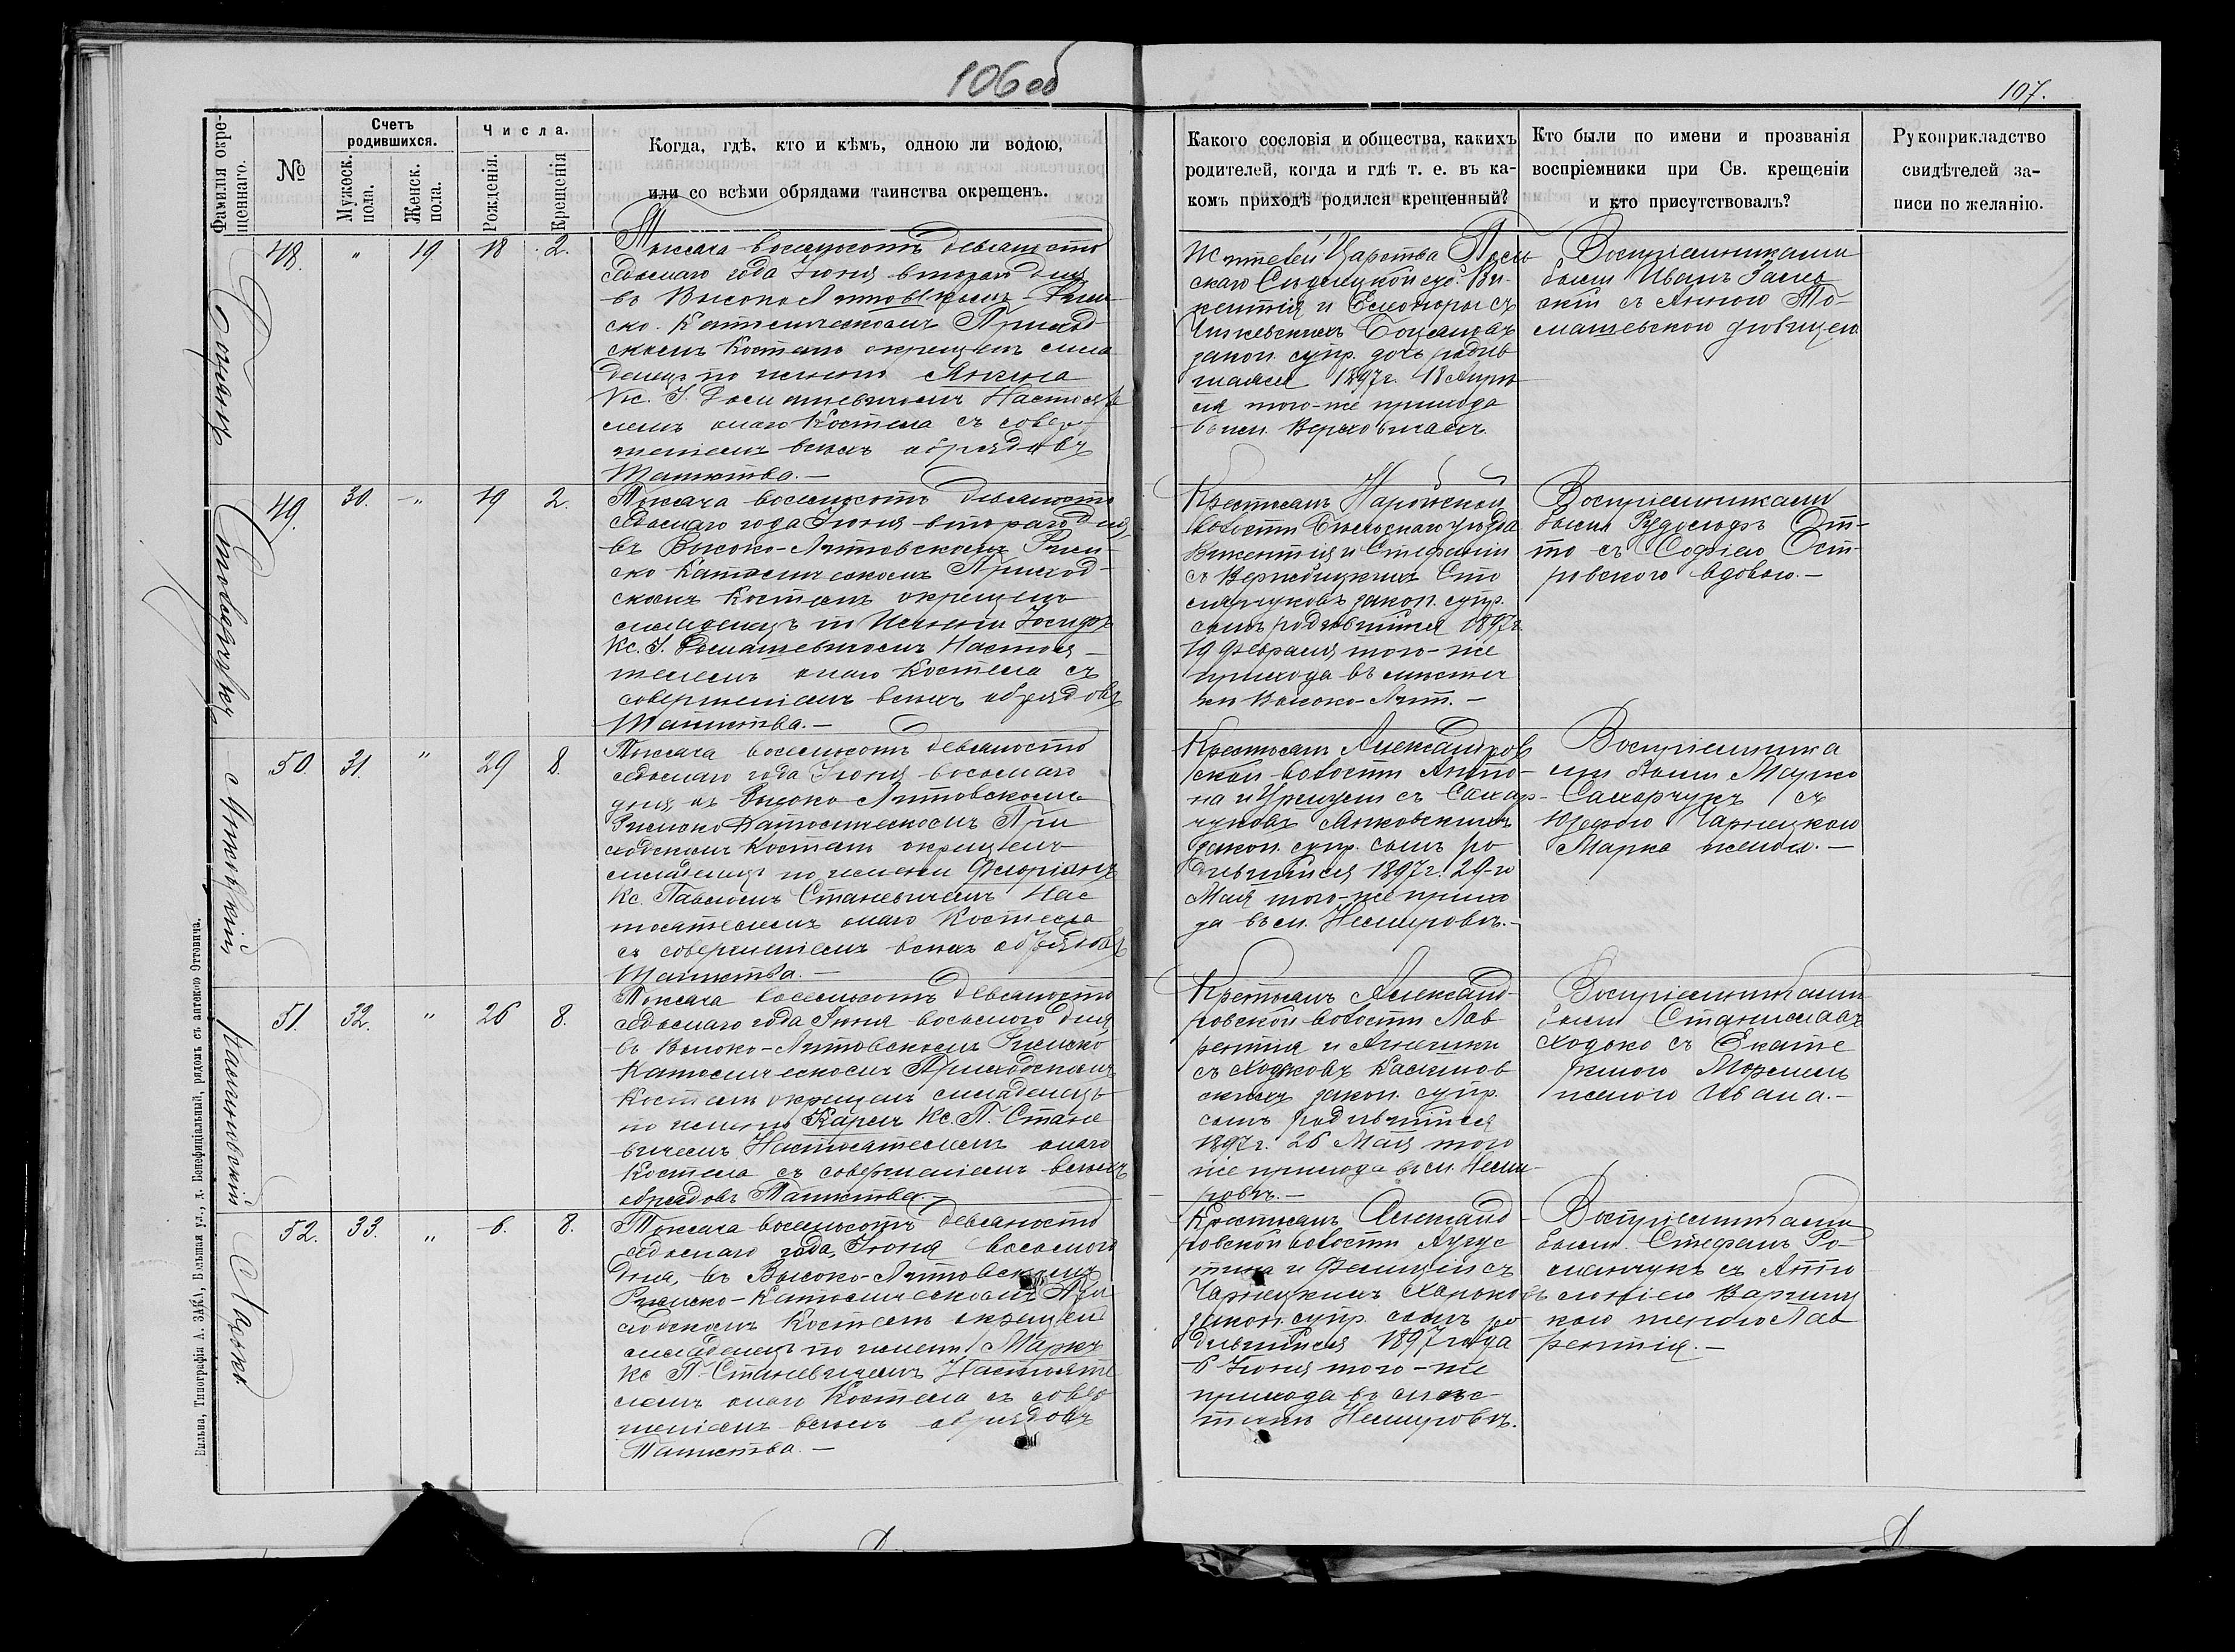 106 об
107.
Фамилія окре-
щеннаго.
№
Счетъ
родившихся.
Мужеск.
пола.
Женск.
пола.
Числа.
Рожденія.
Крещенія
Когда, гдѣ, кто и кѣмъ, одною ли водою,
или со всѣми обрядами таинства окрещенъ.
Какого сословія и общества, какихъ
родителей, когда и гдѣ т. е. въ ка-
комъ приходѣ родился крещенный?
Кто были по имени и прозванія
воспріемники при Св. крещеніи
и кто присутствовалъ?
Рукоприкладство
свидѣтелей за-
писи по желанію.
48.
"
19
18
2.
Тысяча восемьсотъ девяносто
седьмаго года Іюня втораго дня
въ Высоко Литовскомъ - Рим-
ско-Католическомъ Приход-
скомъ Костелѣ окрещенъ мла
денецъ по имени
Кс. І. Ромашевичемъ Настояте
лемъ онаго Костела съ совер-
шеніемъ всѣхъ обрядовъ
Таинства.-
Жителей Царства Поль
скаго Сѣдлецкой губ. Ви-
кентія и Елеоноры съ
законн. супр. дочь родив
шаяся 1897 г. 18 Апрѣ
ля того-же прихода
въ им.
Воспріемниками
были Иванъ
скій съ Анною То-
машевскою дѣвицею
49.
30.
-"
19
2.
Тысяча восемьсотъ девяносто
седьмаго года Іюня втораго дня,
въ Высоко-Литовскомъ Рим-
ско Католическомъ Приход-
скомъ Костелѣ окрещенъ
младенецъ по имени Іосифъ
Кс. І. Ромашевичемъ Настоя-
телемъ онаго Костела съ
совершеніемъ всѣхъ обрядовъ
Таинства.-
Крестьянъ
волости Бѣльскаго уѣзда
Викентія и Стефаніи
съ Сто
законн. супр.
сынъ родившійся 1897 г.
19 Февраля того-же
прихода въ мѣстеч
кѣ Высоко-Лит.-
Воспріемниками
были Рудольфъ От-
то съ Софіею Ост-
ровского вдовою.-
Янковскій
50.
31.
"
29
8.
Тысяча восемьсотъ девяносто
седьмаго года Іюня восьмаго
дня въ Высоко-Литовскомъ
Римско Католическомъ При
ходскомъ Костелѣ окрещенъ
младенецъ по имени Флоріанъ
Кс. Павломъ Станевичемъ Нас
тоятелемъ онаго Костела
съ совершеніемъ всѣхъ обрядовъ
Таинства.-
Крестьянъ Александров
ской волости Анто-
на и съ Сахар-
чуковъ Янковскихъ
законн. супр. сынъ ро
дившійся 1897 г. 29-го
Мая того-же прихо
да въ им. Немировѣ.-
Воспріемника
ми были Марко
Сахарчукъ съ
Юзефою Чарнецкою
Марка женою.-
Калиновскій
51.
32.
"
26
8.
Тысяча восемьсотъ девяносто
седьмаго года Іюня восьмого дня,
въ Высоко-Литовскомъ Римско
Католическомъ Приходскомъ
Костелѣ окрещенъ младенецъ
по имени Карлъ Кс. П. Стане
вичемъ Настоятелемъ онаго
Костела съ совершеніемъ всѣхъ
обрядовъ Таинства.-
Крестьянъ Александ-
ровской волости Лав
рентія и Агнешки
съ Ходьковъ Калинов
скихъ законн. супр.
сынъ родившійся
1897 г. 26 Мая того
же прихода въ им. Неми-
ровѣ.-
Воспріемниками
были Станиславъ
Ходько съ Екате
риною
женою Ивана.-
52.
33.
"
6.
8.
Тысяча восемьсотъ девяносто
седьмаго года, Іюня восьмого
дня, въ Высоко-Литовскомъ
Римско-Католическомъ При
ходскомъ Костелѣ окрещенъ
младенецъ по имени Маркъ
Кс П. Станевичемъ Настояте
лемъ онаго Костела съ совер
шеніемъ всѣхъ обрядовъ
Таинства.-
Крестьянъ Александ-
ровской волости Авгус
тина и Фелиціи съ
Чарнецкихъ
законн. супр. сынъ ро
дившійся 1897 года
6 Іюня того-же
прихода въ мѣс-
течкѣ Немировѣ.
Воспріемниками
были Стефанъ Ро-
манчукъ съ Анто
ніею
кою женою Лав
рентія.-
Вильна, Типографія А. ЗАКА, Большая ул., д. Бенефиціальный, рядомъ съ аптекою Оттовича.